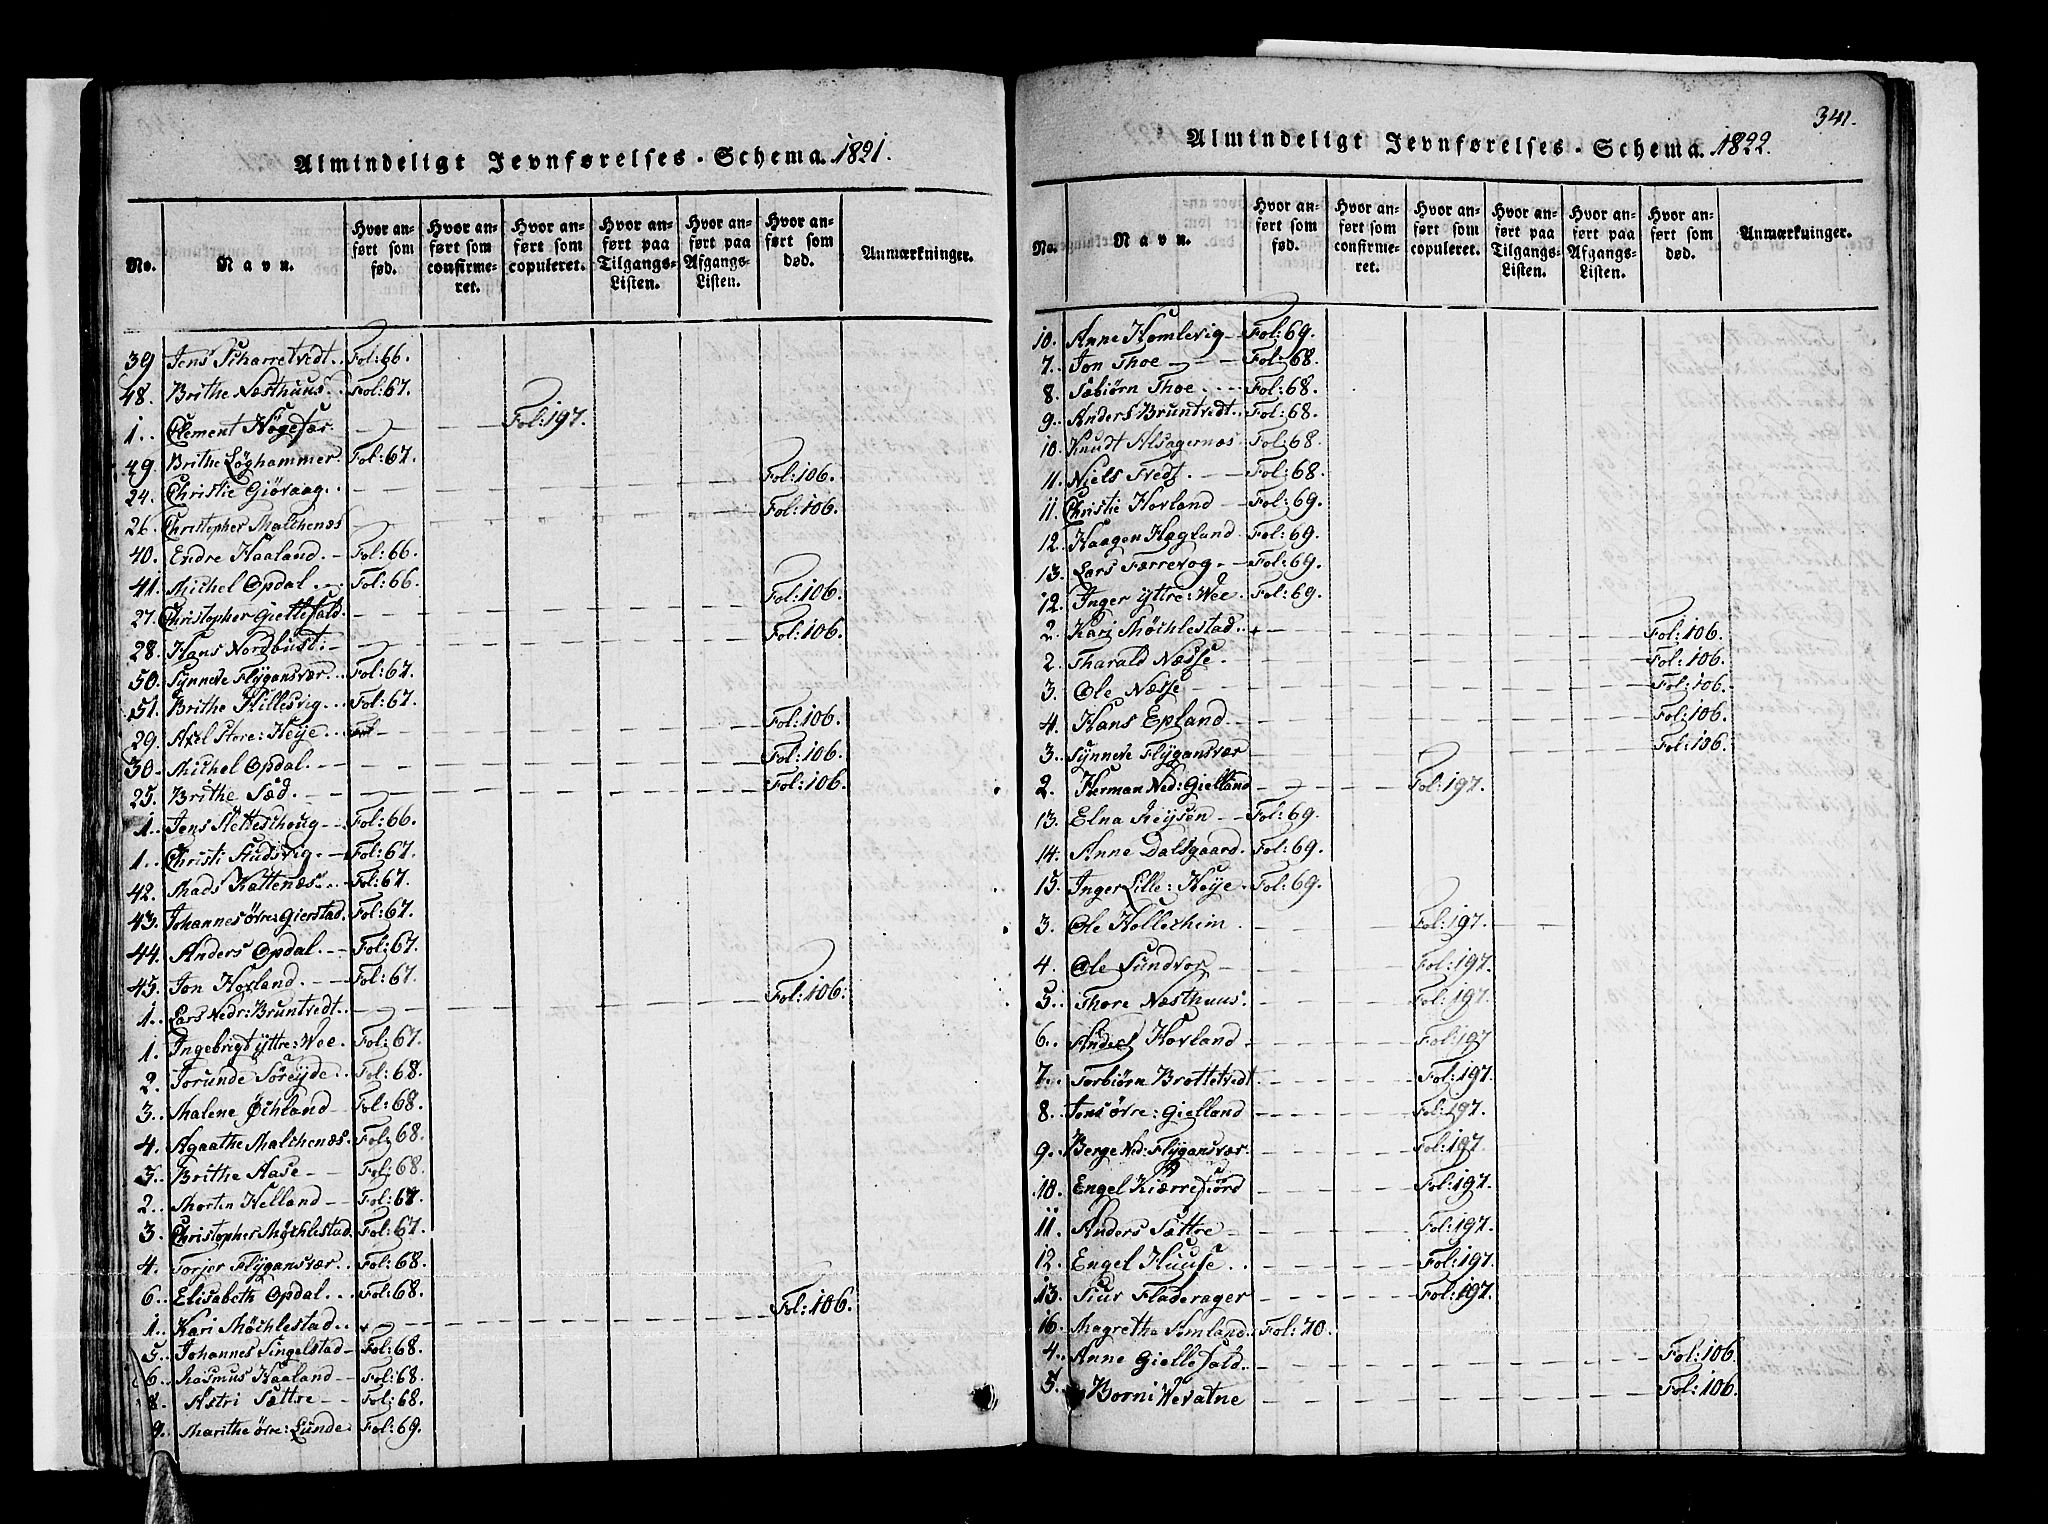 Almindeligt Jevnførelses-Schema. 1821.
No. Navn. Hvor anført som fød. Hvor anført som confirmeret. Hvor anført som copuleret. Hvor anført paa Tilgangs-Listen. Hvor anført paa Afgangs-Listen. Hvor anført som død. Anmærkninger.
39 Jens Scharretvedt.. Fol:66.
48. Brithe Næsthuus. Fol:67.
1.. Clement Høgesæs Fol:197.
49. Brithe Løghammer. Fol:67.
24. Christie Giøvaag. Fol:106.
26. Christopher Malchenæs Fol:106.
40. Endre Haaland. Fol:66.
41. Michel Opdal. Fol:66.
27. Christopher Giellefald. Fol:106.
28. Hans Nordbust. Fol:106.
50. Synneve Flygansvær. Fol:67.
51. Brithe Hillesvig. Fol:67.
29. Axel Store: Høye. Fol:106.
30. Michel Opdal. Fol:106.
25. Brithe Sæd. Fol:106.
1.. Jens Sletteschoug Fol:66.
1.. Christi Audsvig. Fol:67.
42. Mads Kattenæs. Fol:67.
43. Johannes øvre: Gierstad. Fol:67.
44. Anders Opdal. Fol:67.
45. Jon Hovland. Fol:67.
1.. Lars Nedr: Bruntvedt.. Fol:106.
1. Ingebrigt yttre: Wee. Fol:67.
2. Jorunde Søreyde. Fol:68.
3.. Malene Øchland Fol:68.
4. Agaathe Malchenæs. Fol:68.
5.. Brithe Aase Fol:68.
2.. Morten Helland Fol:67.
3. Christopher Møchlestad. Fol:67.
4. Torjer Flygansvær.. Fol:68.
6.. Elisabeth Opdal.. Fol:68.
1.. Kari Møchlestad.. Fol:106.
5.. Johannes Singelstad Fol:68.
6.. Rasmus Haaland Fol:68.
8. Astri Sættre Fol:68.
9. Marithe øvre: Lunde. Fol:69.
341.
Almindeligt Jevnførelses-Schema. 1822.
No. Navn. Hvor anført som fød. Hvor anført som confirmeret. Hvor anført som copuleret. Hvor anført paa Tilgangs-Listen. Hvor anført paa Afgangs-Listen. Hvor anført som død. Anmærkninger.
10. Anne Homlevig Fol:69.
7.. Jon Thoe Fol:68.
8. Sæbiørn Thoe Fol:68.
9. Anders Bruntvedt. Fol:68.
10. Knudt Alsagernæs Fol:68.
11. Niels Tvedt. Fol:68.
11. Christie Hovland Fol:69.
12. Haagen Hagland. Fol:69.
13. Lars Færrevog Fol:69.
12. Inger yttre: Wee. Fol:69.
2. Kari Møchlestad. Fol:106.
2. Tharald Næsse. Fol:106.
3. Ole Næsse Fol:106.
4. Hans Epland Fol:106.
3. Synneve Flygansvær Fol:106.
2. Herman Ned: Gielland Fol:197.
13. Elna Røysen Fol:69.
14. Anne Dalsgaard. Fol:69.
15. Inger Lille: Høye. Fol:69.
3. Ole Hollechim. Fol:197.
4. Ole Sundvor Fol:197.
5.. Thore Næsthuus. Fol:197.
6.. Anders Hovland Fol:197
7.. Torbiørn Brottetvedt. Fol:197.
8. Jens øvre: Gielland Fol:197.
9.. Berge Ned: Flygansvær. Fol:197.
10. Engel Kiærrefiord Fol:197.
11. Anders Sættre Fol:197.
12. Engel Huuse.. Fol:197.
13. Siur Fladerager Fol:197.
16. Magretha Somland. Fol:70.
4.. Anne Giellefald. Fol:106.
5.. Borni Wevatne Fol:106.